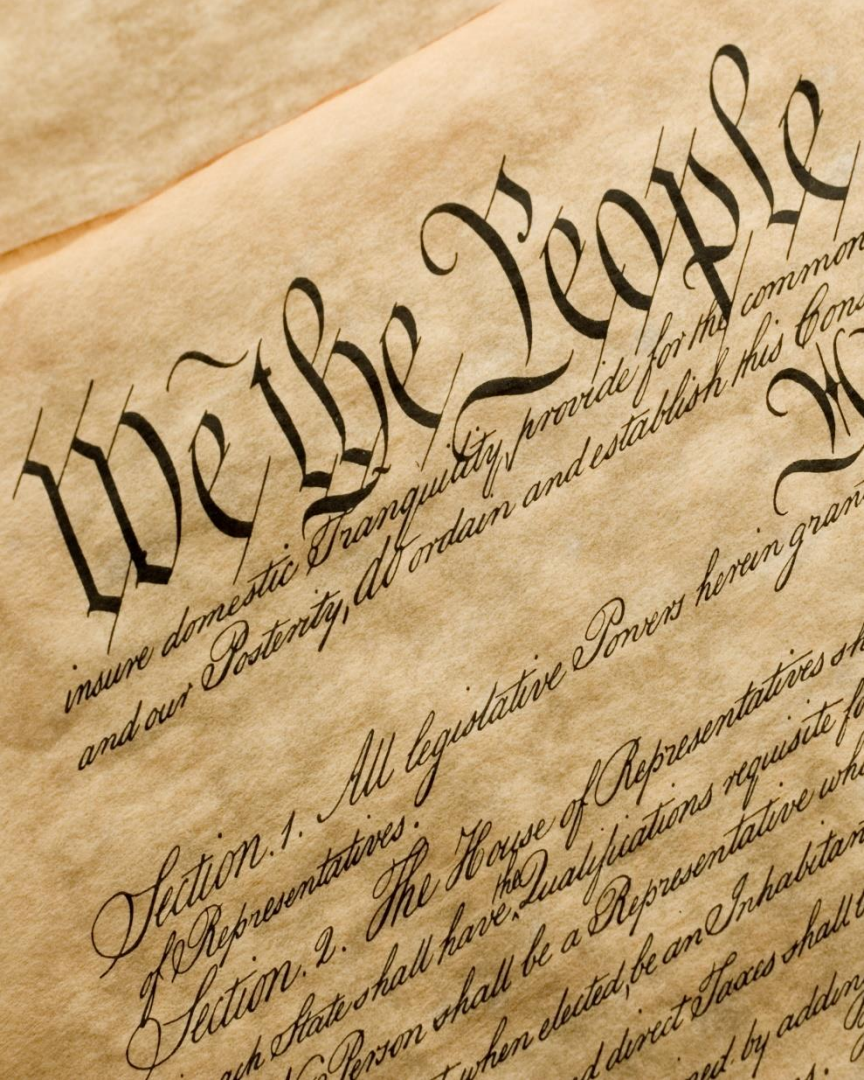 We the People
insure domestic Tranquility, provide for the common
and our Posterity, do ordain and establish this Cons
Section. 1. All legislative Powers herein gran
of Representatives.
Section. 2. The House of Representatives sh
ach State shall have the Qualifications requisite fo
Person shall be a Representative who
when elected, be an Inhabitan
d direct Taxes shall b
ned by addin